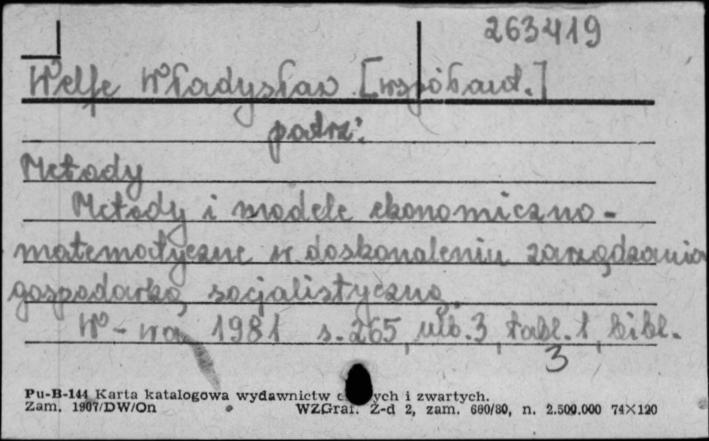 263419
Welfe Władysław [współaut.]
patrz:
Metody
Metody i modele ekonomiczno-
matematyczne w doskonaleniu zarządzania
gospodarką socjalistyczną.
W-wa 1981 s. 265, ulb. 3, tabl. 1, bibl.
3
Pu-B-144 Karta katalogowa wydawnictw ych i zwartych.
Zam. 1907/DW/On WZGraf. Z-d 2, zam. 660/80, n. 2.500.000 74×120